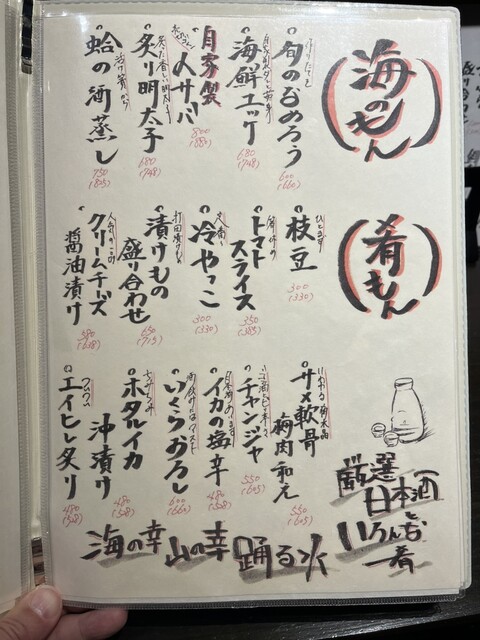 海のもん
旬のなめろう
600
(660)
海鮮ユッケ
680
(748)
自家製
〆サバ
800
(880)
炙り明太子
680
(748)
蛤の酒蒸し
750
(825)
肴もん
枝豆
300
(330)
トマト
スライス
350
(385)
冷やっこ
300
(330)
漬けもの
盛り合わせ
650
(715)
クリームチーズ
醤油漬け
580
(638)
サメ軟骨
梅肉和え
550
(605)
チャンジャ
550
(605)
イカの塩辛
480
(528)
いくらおろし
600
(660)
ホタルイカ
沖漬け
480
(528)
エイヒレ炙り
480
(528)
厳選
日本酒と
いろんなお
肴
踊る水
山の幸
海の幸